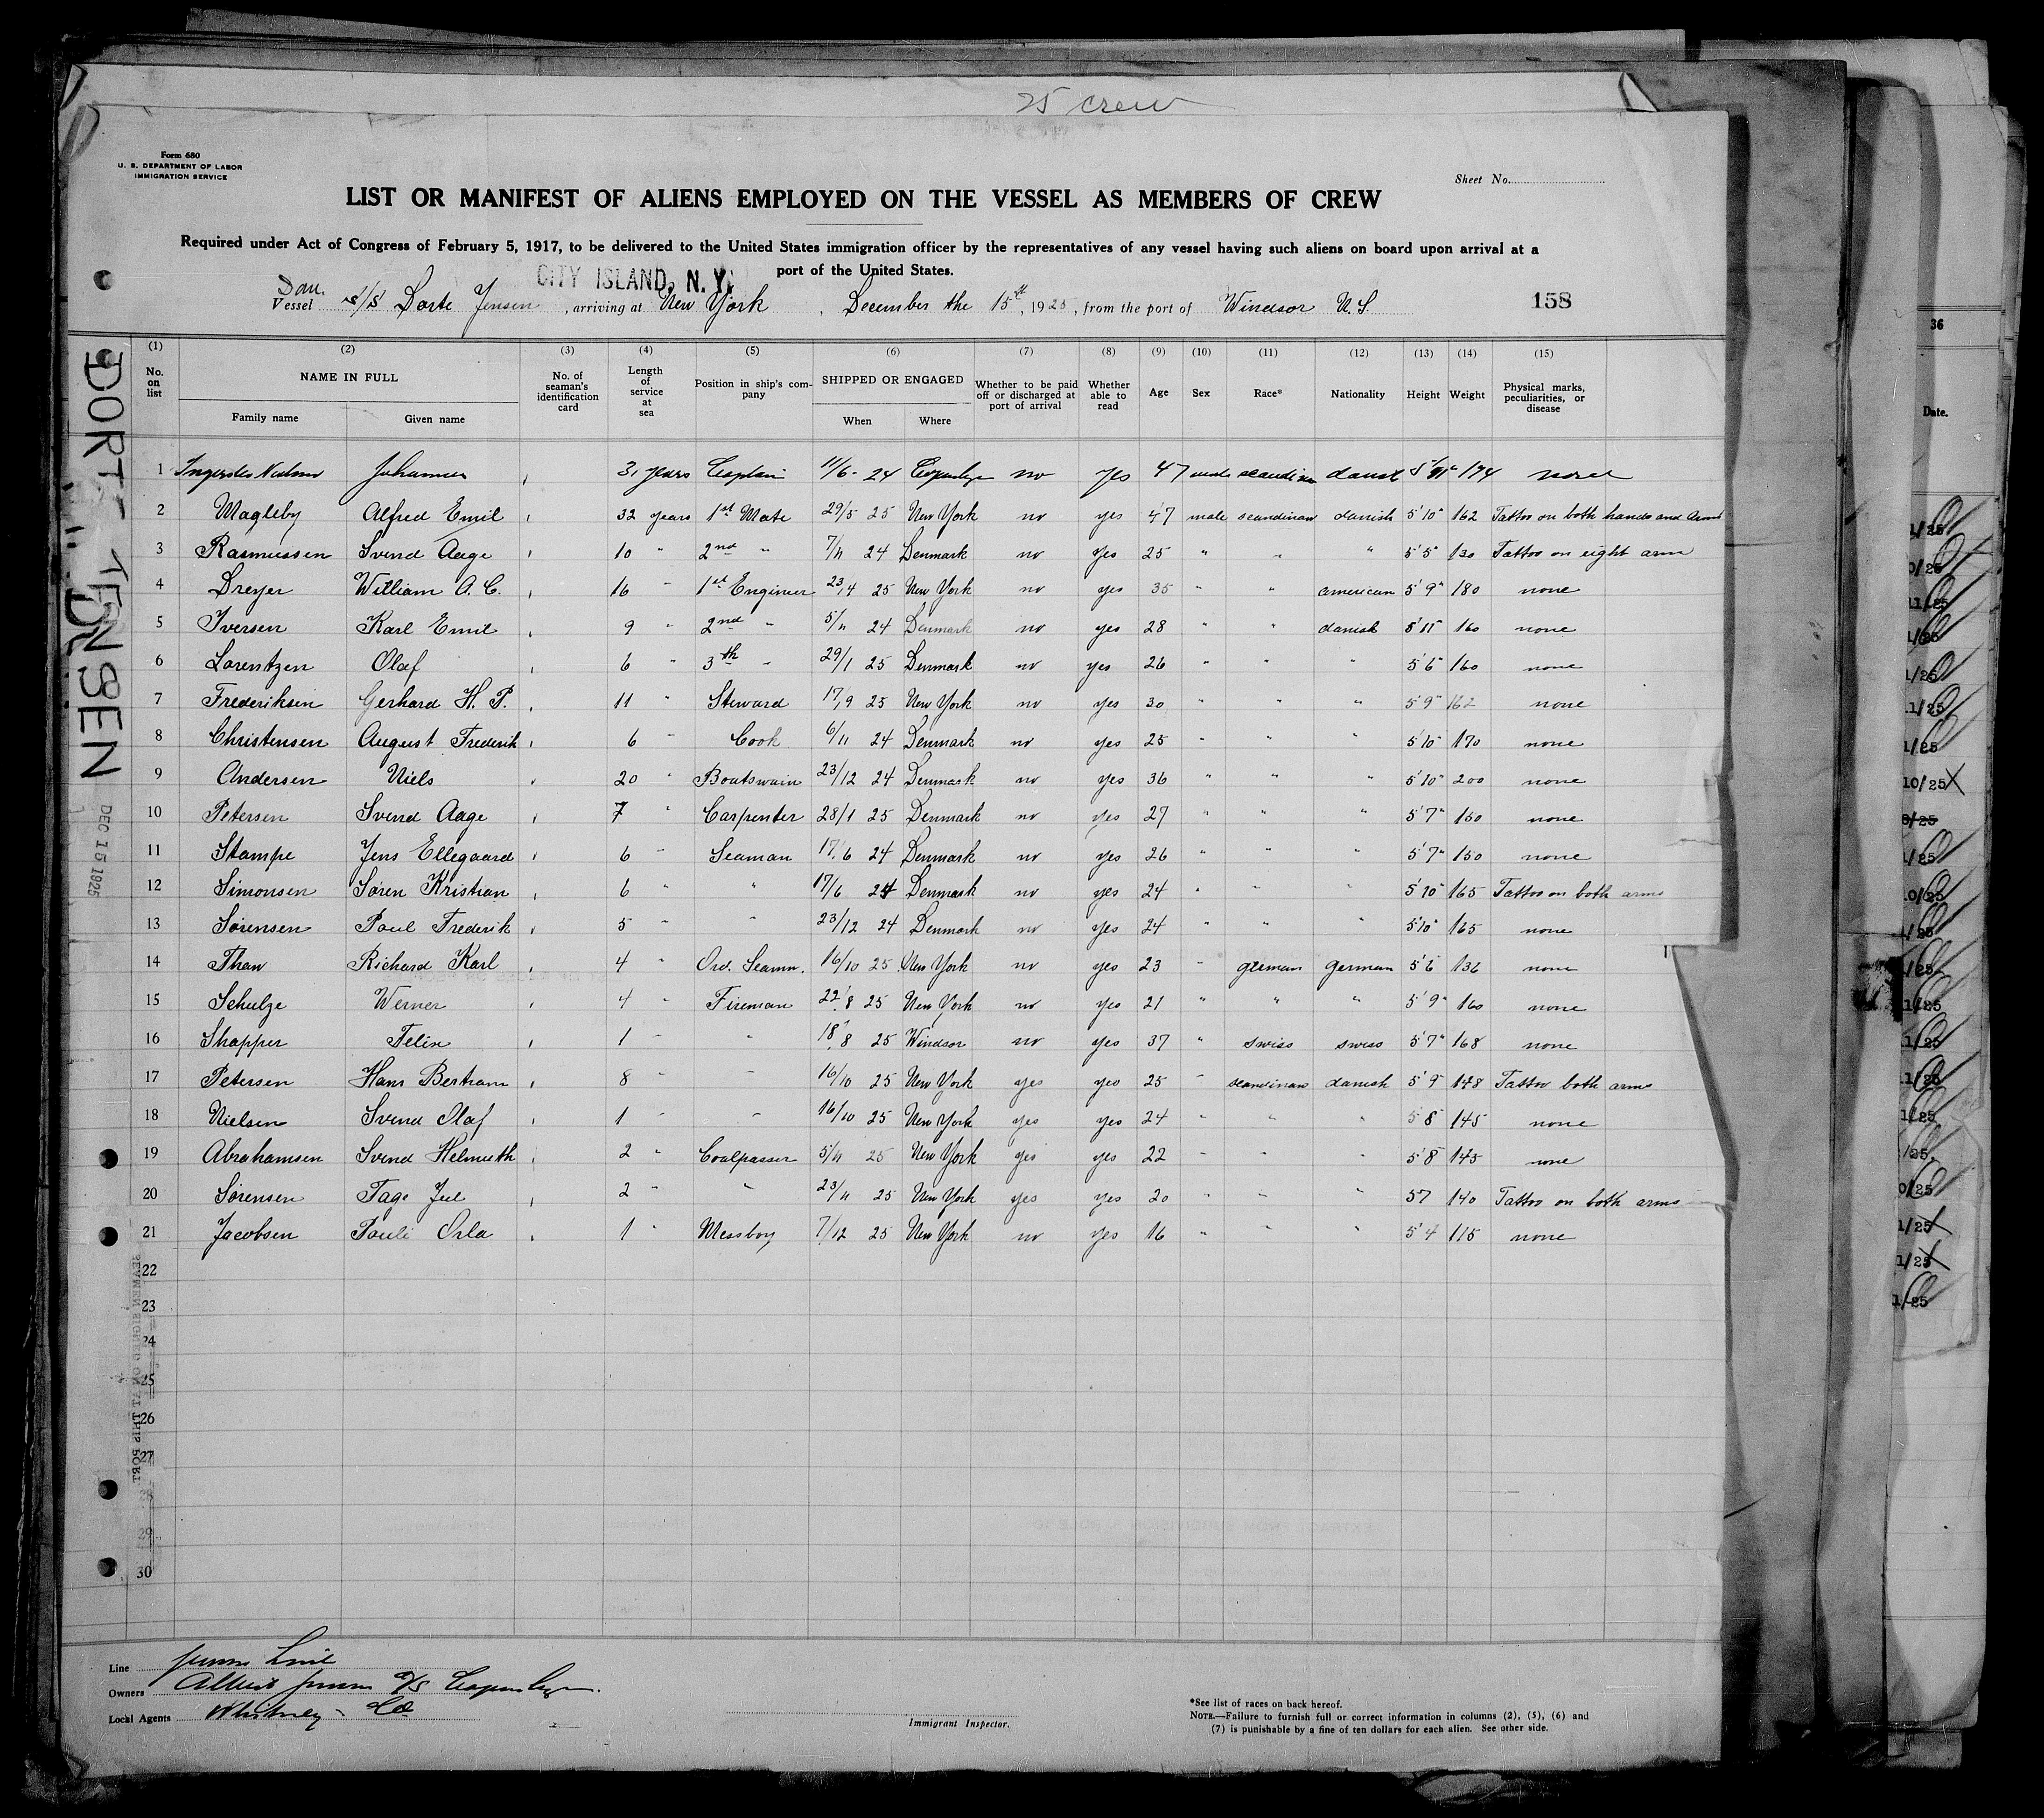 25 crew
Form 680
U. S. DEPARTMENT OF LABOR
IMMIGRATION SERVICE
Sheet No.
LIST OR MANIFEST OF ALIENS EMPLOYED ON THE VESSEL AS MEMBERS OF CREW
Required under Act of Congress of February 5, 1917, to be delivered to the United States immigration officer by the representatives of any vessel having such aliens on board upon arrival at a
port of the United States.
CITY ISLAND, N. Y.
Dan.
Vessel S/S Dorte Jensen, arriving at New York, December the 15th, 1925, from the port of Windsor N.S. 158
(1) (2) (3) (4) (5) (6) (7) (8) (9) (10) (11) (12) (13) (14) (15)
No. on list NAME IN FULL Family name Given name No. of seaman's identification card Length of service at sea Position in ship's company SHIPPED OR ENGAGED When Where Whether to be paid off or discharged at port of arrival Whether able to read Age Sex Race* Nationality Height Weight Physical marks, peculiarities, or disease
1 Johannes 31 years Captain 11/6 - 24 no yes 47 male 174
2 Magleby Alfred Emil 32 years 1st Mate 29/5 25 New York no yes 47 male scandinav danish 5'10" 162 Tattoo on both hands and arms
3 Rasmussen Svend Aage 10 " 2nd " 7/11 24 Denmark no yes 25 " " " 5'5" 130 Tattoo on right arm
4 Dreyer William A. C. 16 " 1st Engineer 23/4 25 New York no yes 35 " " american 5'9" 180 none
5 Iversen Karl Emil 9 " 2nd " 5/11 24 Denmark no yes 28 " " danish 5'11" 160 none
6 Lorentzen Olaf 6 " 3th " 29/1 25 Denmark no yes 26 " " " 5'6" 160 none
7 Frederiksen Gerhard H. P. 11 " Steward 17/9 25 New York no yes 30 " " " 5'9" 162 none
8 Christensen August Frederik 6 " Cook 6/11 24 Denmark no yes 25 " " " 5'10" 170 none
9 Andersen Niels 20 " Boatswain 23/12 24 Denmark no yes 36 " " " 5'10" 200 none
10 Petersen Svend Aage 7 " Carpenter 28/1 25 Denmark no yes 27 " " " 5'7" 160 none
11 Stampe Jens Ellegaard 6 " Seaman 17/6 24 Denmark no yes 26 " " " 5'7" 150 none
12 Simonsen Søren Kristian 6 " " 17/6 24 Denmark no yes 24 " " " 5'10" 165 Tattoo on both arms
13 Sørensen Poul Frederik 5 " " 23/12 24 Denmark no yes 24 " " " 5'10" 165 none
14 Thaw Richard Karl 4 " Ord. Seamn. 16/10 25 New York no yes 23 " german german 5'6 136 none
15 Schulze Werner 4 " Fireman 22/8 25 New York no yes 21 " " " 5'9" 160 none
16 Shapper Felix 1 " " 18/8 25 Windsor no yes 37 " swiss swiss 5'7" 168 none
17 Petersen Hans Bertram 8 " " 16/10 25 New York yes yes 25 " scandinav danish 5'9" 148 Tattoo both arms
18 Nielsen Svend Olaf 1 " " 16/10 25 New York yes yes 24 " " " 5'8" 145 none
19 Abrahamsen Svend Helmuth 2 " Coalpasser 5/11 25 New York yes yes 22 " " " 5'8" 145 none
20 Sørensen Tage Juel 2 " " 23/11 25 New York yes yes 20 " " " 57 140 Tattoo on both arms
21 Jacobsen Pouli Orla 1 " Messboy 7/12 25 New York no yes 16 " " " 5'4 115 none
22
23
24
25
26
27
28
29
30
DORTE JENSEN
DEC 15 1925
Line Jensen Line
Owners Albert Jensen A/S Copenhagen.
Local Agents Whitney - Co
Immigrant Inspector.
*See list of races on back hereof.
NOTE.—Failure to furnish full or correct information in columns (2), (5), (6) and
(7) is punishable by a fine of ten dollars for each alien. See other side.
36
Date.